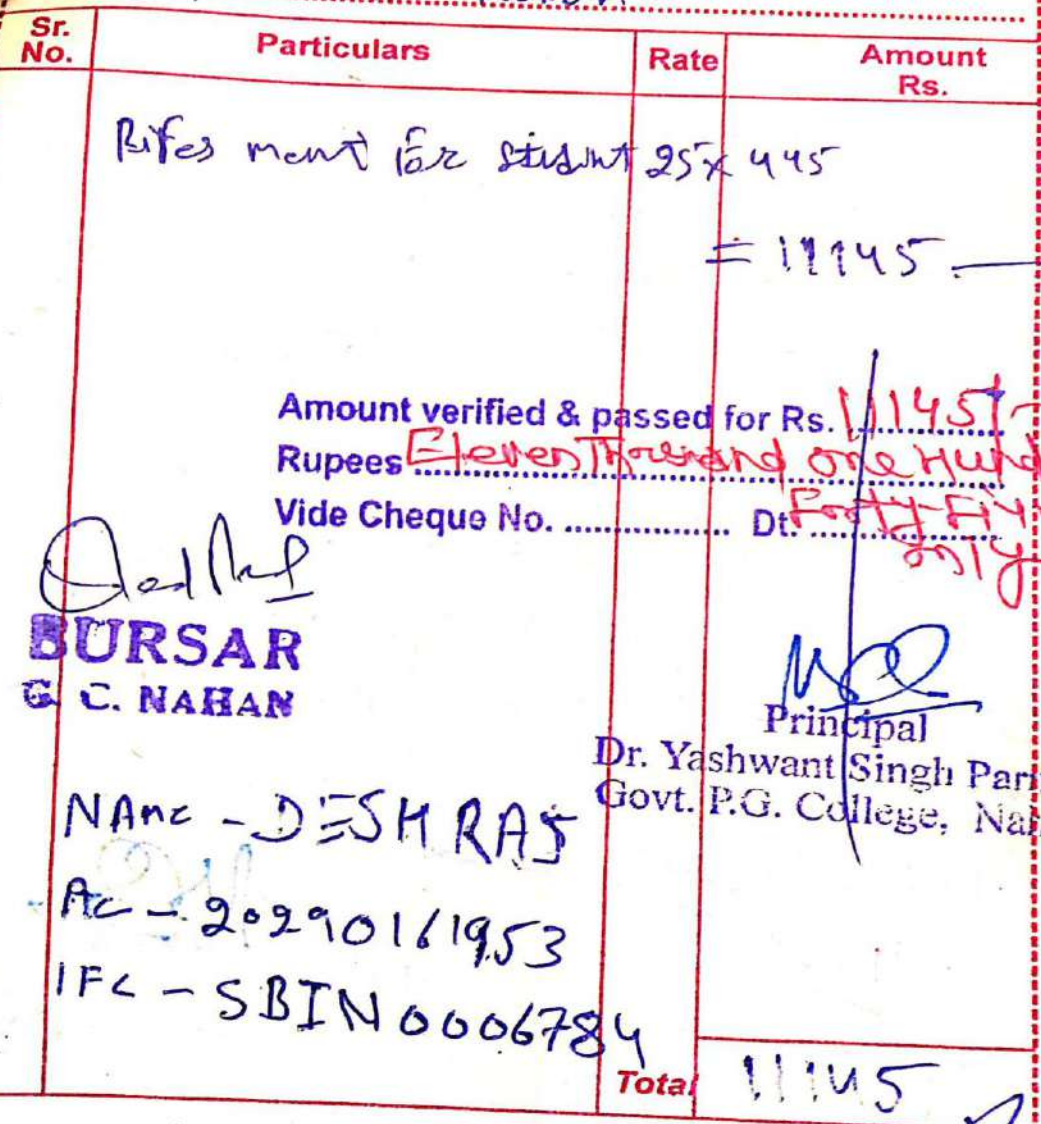 Sr. No. Particulars Rate Amount Rs.
Rifes ment for student 25 x 445
= 11145
Amount verified & passed for Rs. 11145/-
Rupees Eleven Thousand one Hund
Vide Cheque No. ................ Dt. Forty-Five
only
BURSAR
G. C. NAHAN
Principal
Dr. Yashwant Singh Par
Govt. P.G. College, Na
NAme - DESH RAJ
Ac - 20290161953
IFC - SBIN0006784
Total 11145